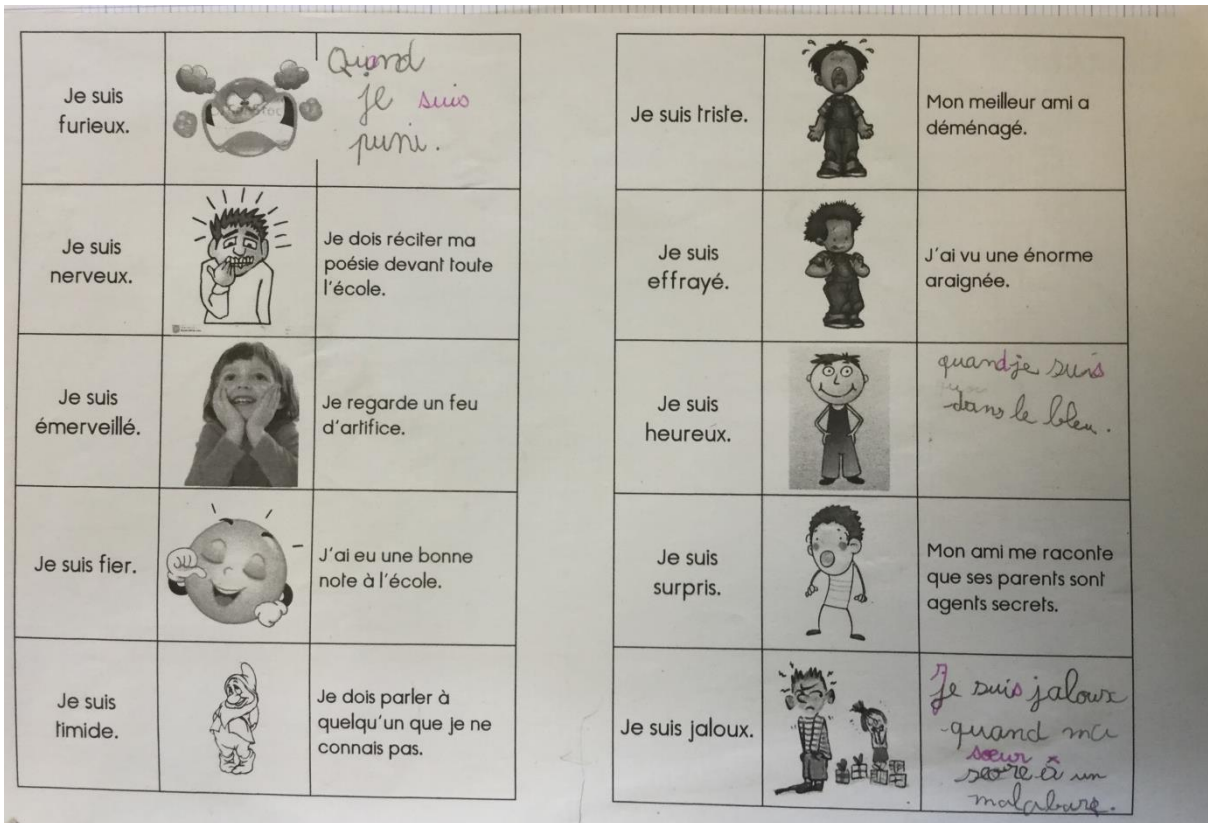 Je suis
furieux.
Quand
je suis
puni.
Je suis
nerveux.
Je dois réciter ma
poésie devant toute
l'école.
Je suis
émerveillé.
Je regarde un feu
d'artifice.
Je suis fier.
J'ai eu une bonne
note à l'école.
Je suis
timide.
Je dois parler à
quelqu'un que je ne
connais pas.
Je suis triste.
Mon meilleur ami a
déménagé.
Je suis
effrayé.
J'ai vu une énorme
araignée.
Je suis
heureux.
quand je suis
dans le bleu.
Je suis
surpris.
Mon ami me raconte
que ses parents sont
agents secrets.
Je suis jaloux.
Je suis jaloux
quand ma
sœur
à un